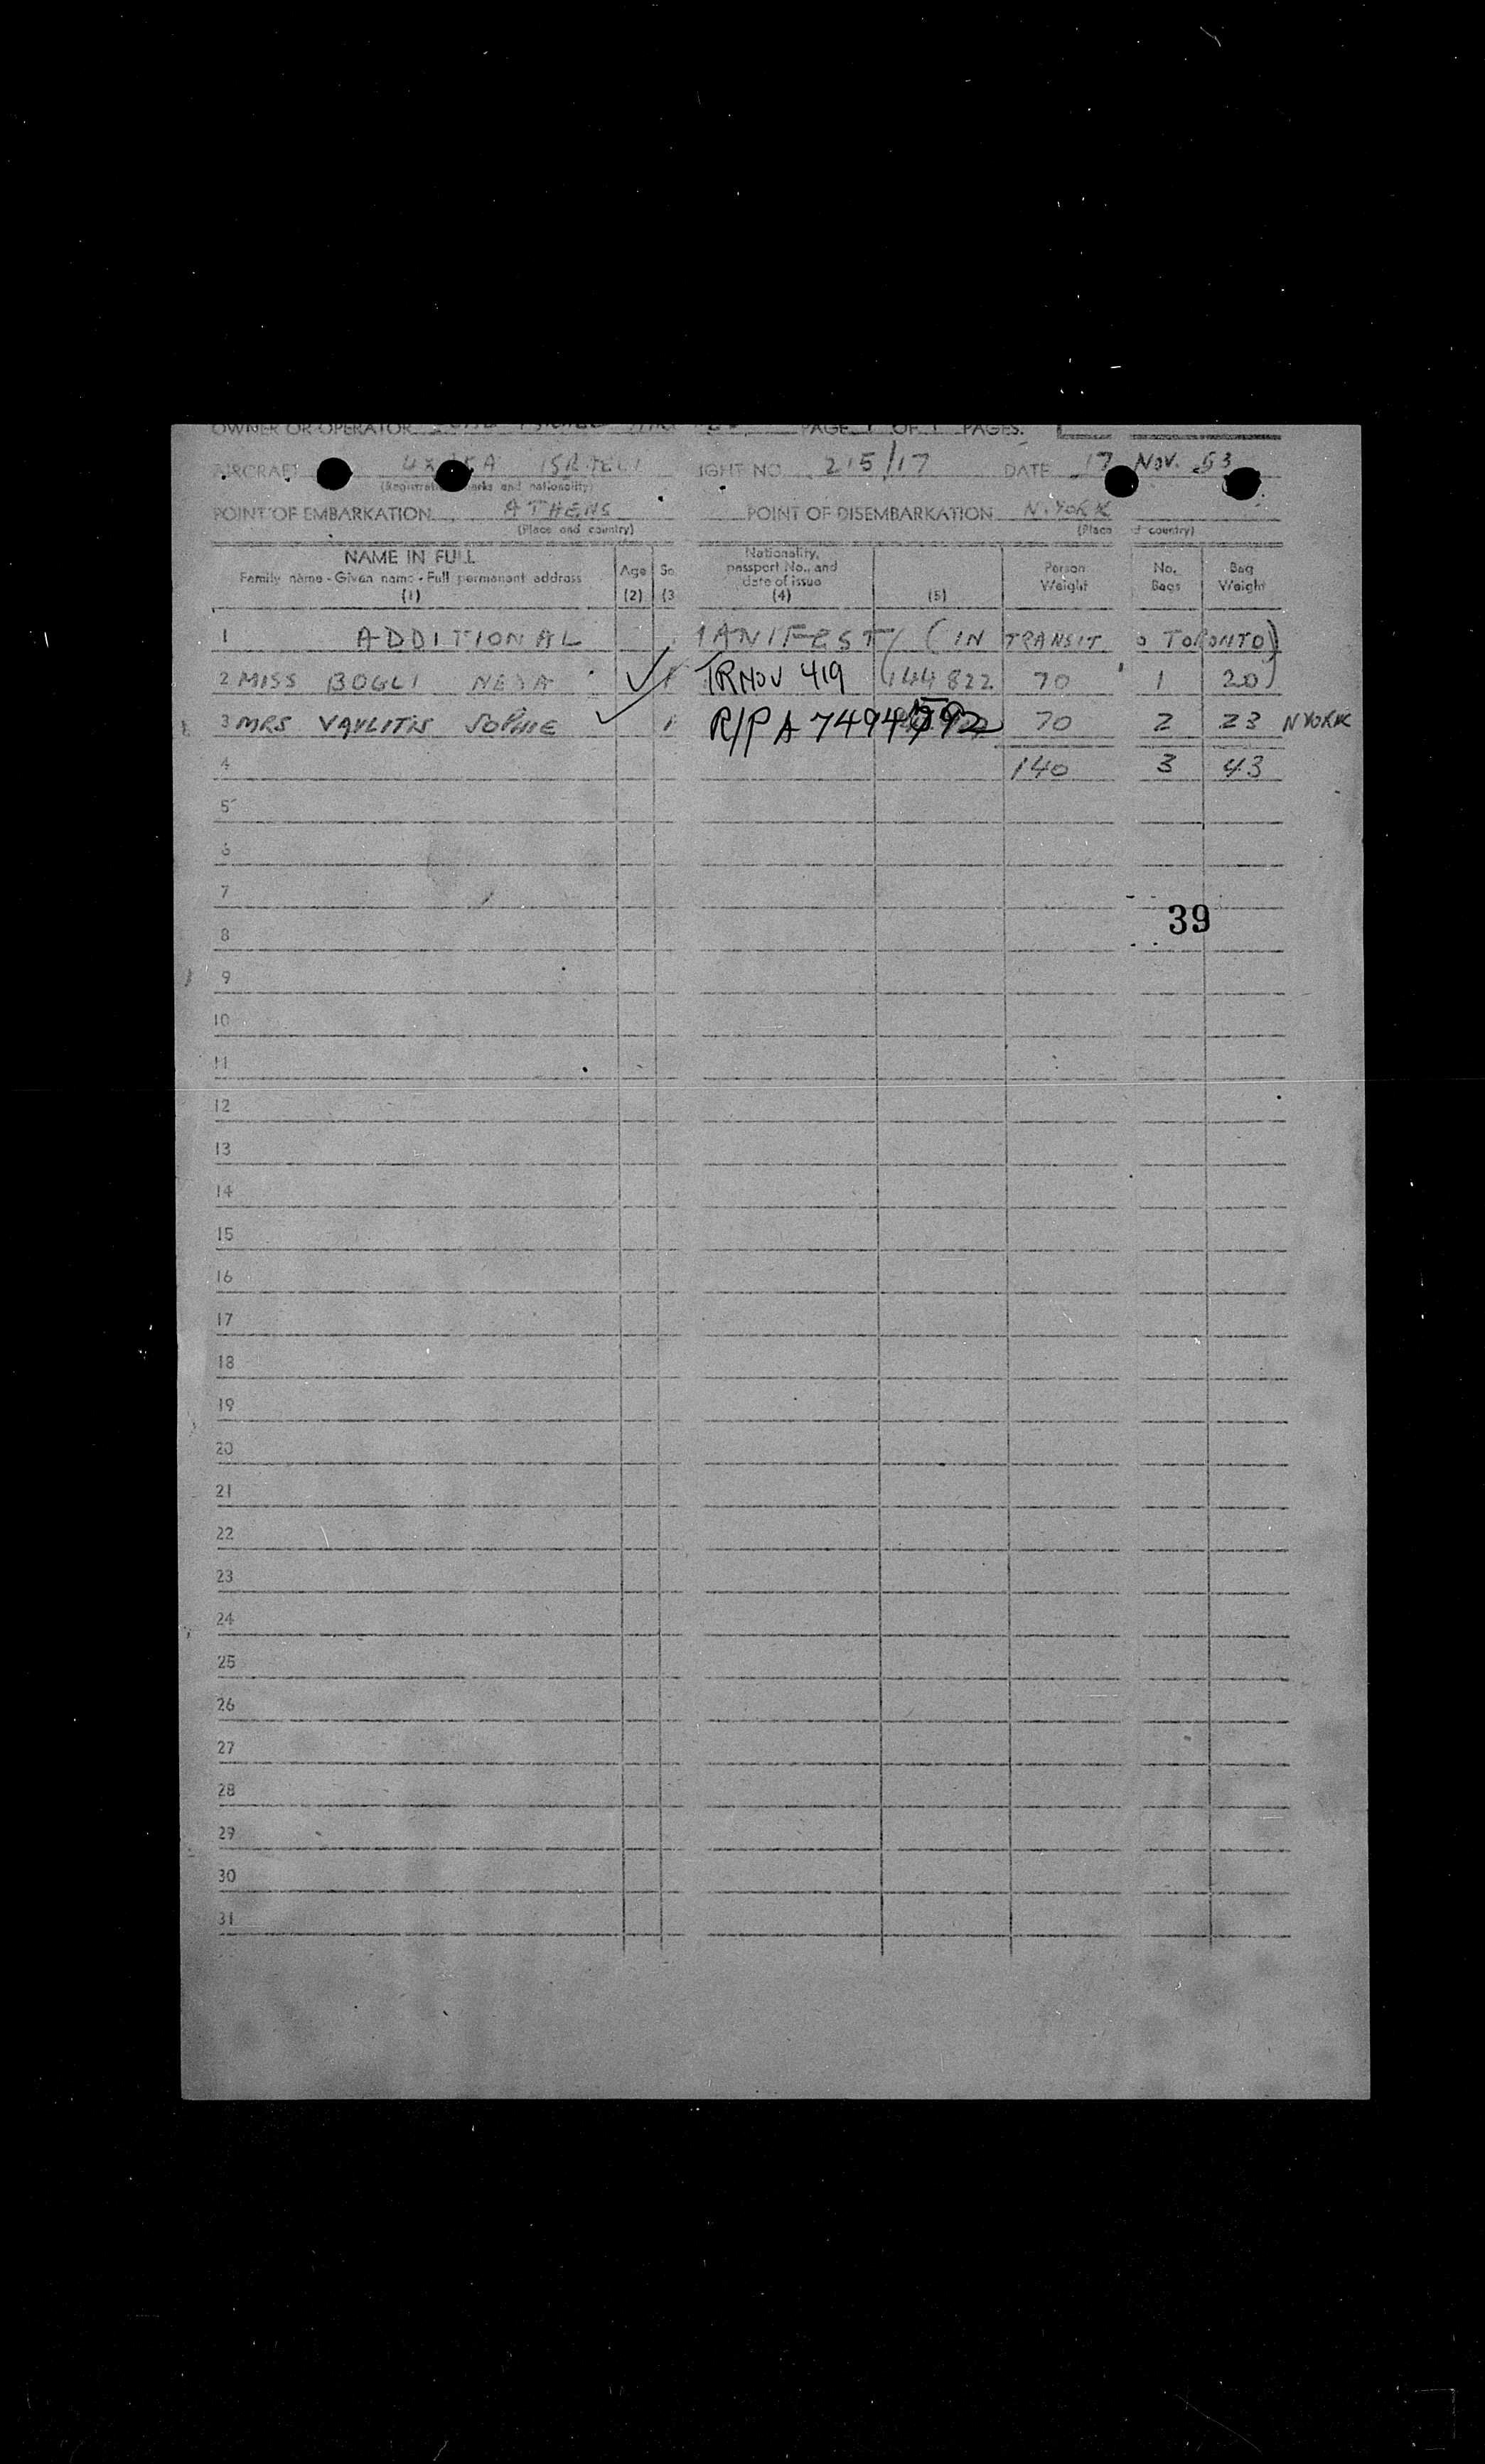 OWNER OR OPERATOR ISRAEL PAGE 1 OF 1 PAGES.
AIRCRAFT ISRAELI IGHT NO. 215/17 DATE 17 NOV. 53
(Registrati arks and nationality)
POINT OF EMBARKATION ATHENS POINT OF DISEMBARKATION N.YORK
(Place and country) (Place d country)
NAME IN FULL
Family name - Given name - Full permanent address
(1)
Age
(2)
Se
(3
Nationality,
passport No., and
date of issue
(4)
(5)
Person
Weight
No.
Bags
Bag
Weight
1 ADDITIONAL MANIFEST (IN TRANSIT O TORONTO)
2 MISS BOGLI NEDA TRNOV 419 144822 70 1 20
3 MRS VAVLITIS SOPHIE R/P A 7494592 70 2 23 N YORK
4 140 3 43
5
6
7
39
8
9
10
11
12
13
14
15
16
17
18
19
20
21
22
23
24
25
26
27
28
29
30
31